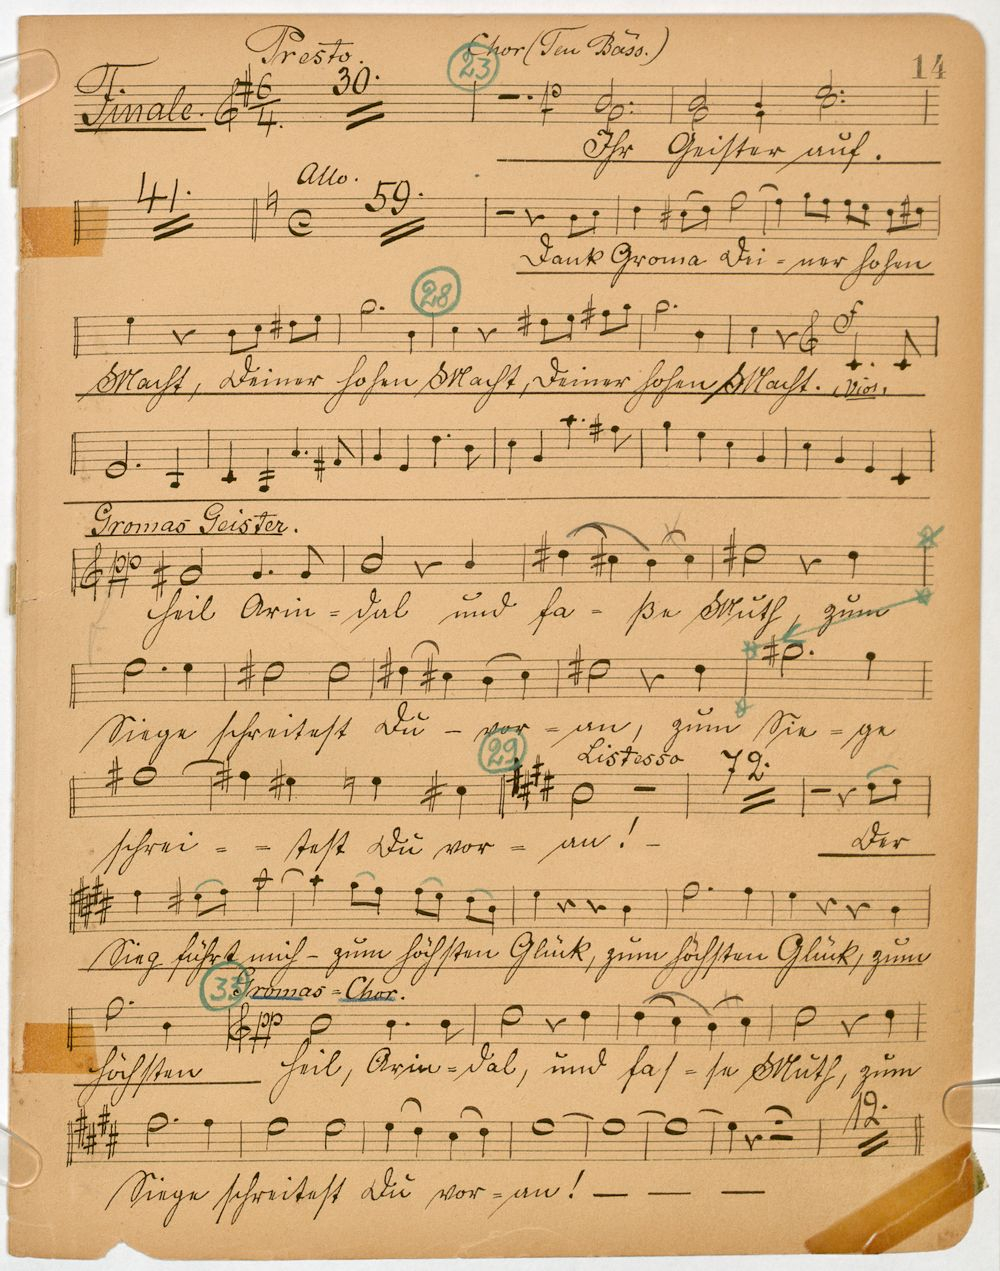 Presto. Chor (Ten Bäss.)
23
14
Finale. 6/4 30.
Ihr Geister auf.
41. Allo. 59.
Dank Groma Dei = ner hohen
28
f
Macht, Deiner hohen Macht, Deiner hohen Macht. (Viol.
Gromas Geister.
pp
Heil Arin = dal und fa = ße Muth, zum
Siege schreitest Du – vor = an, zum Sie = ge
29 Listesso 72.
schrei = = test Du vor = an! – Der
Sieg führt mich – zum höchsten Glück, zum höchsten Glück, zum
33 Gromas = Chor.
pp
höchsten Heil, Arin = dal, und fas = se Muth, zum
12.
Siege schreitest Du vor = an! — — —